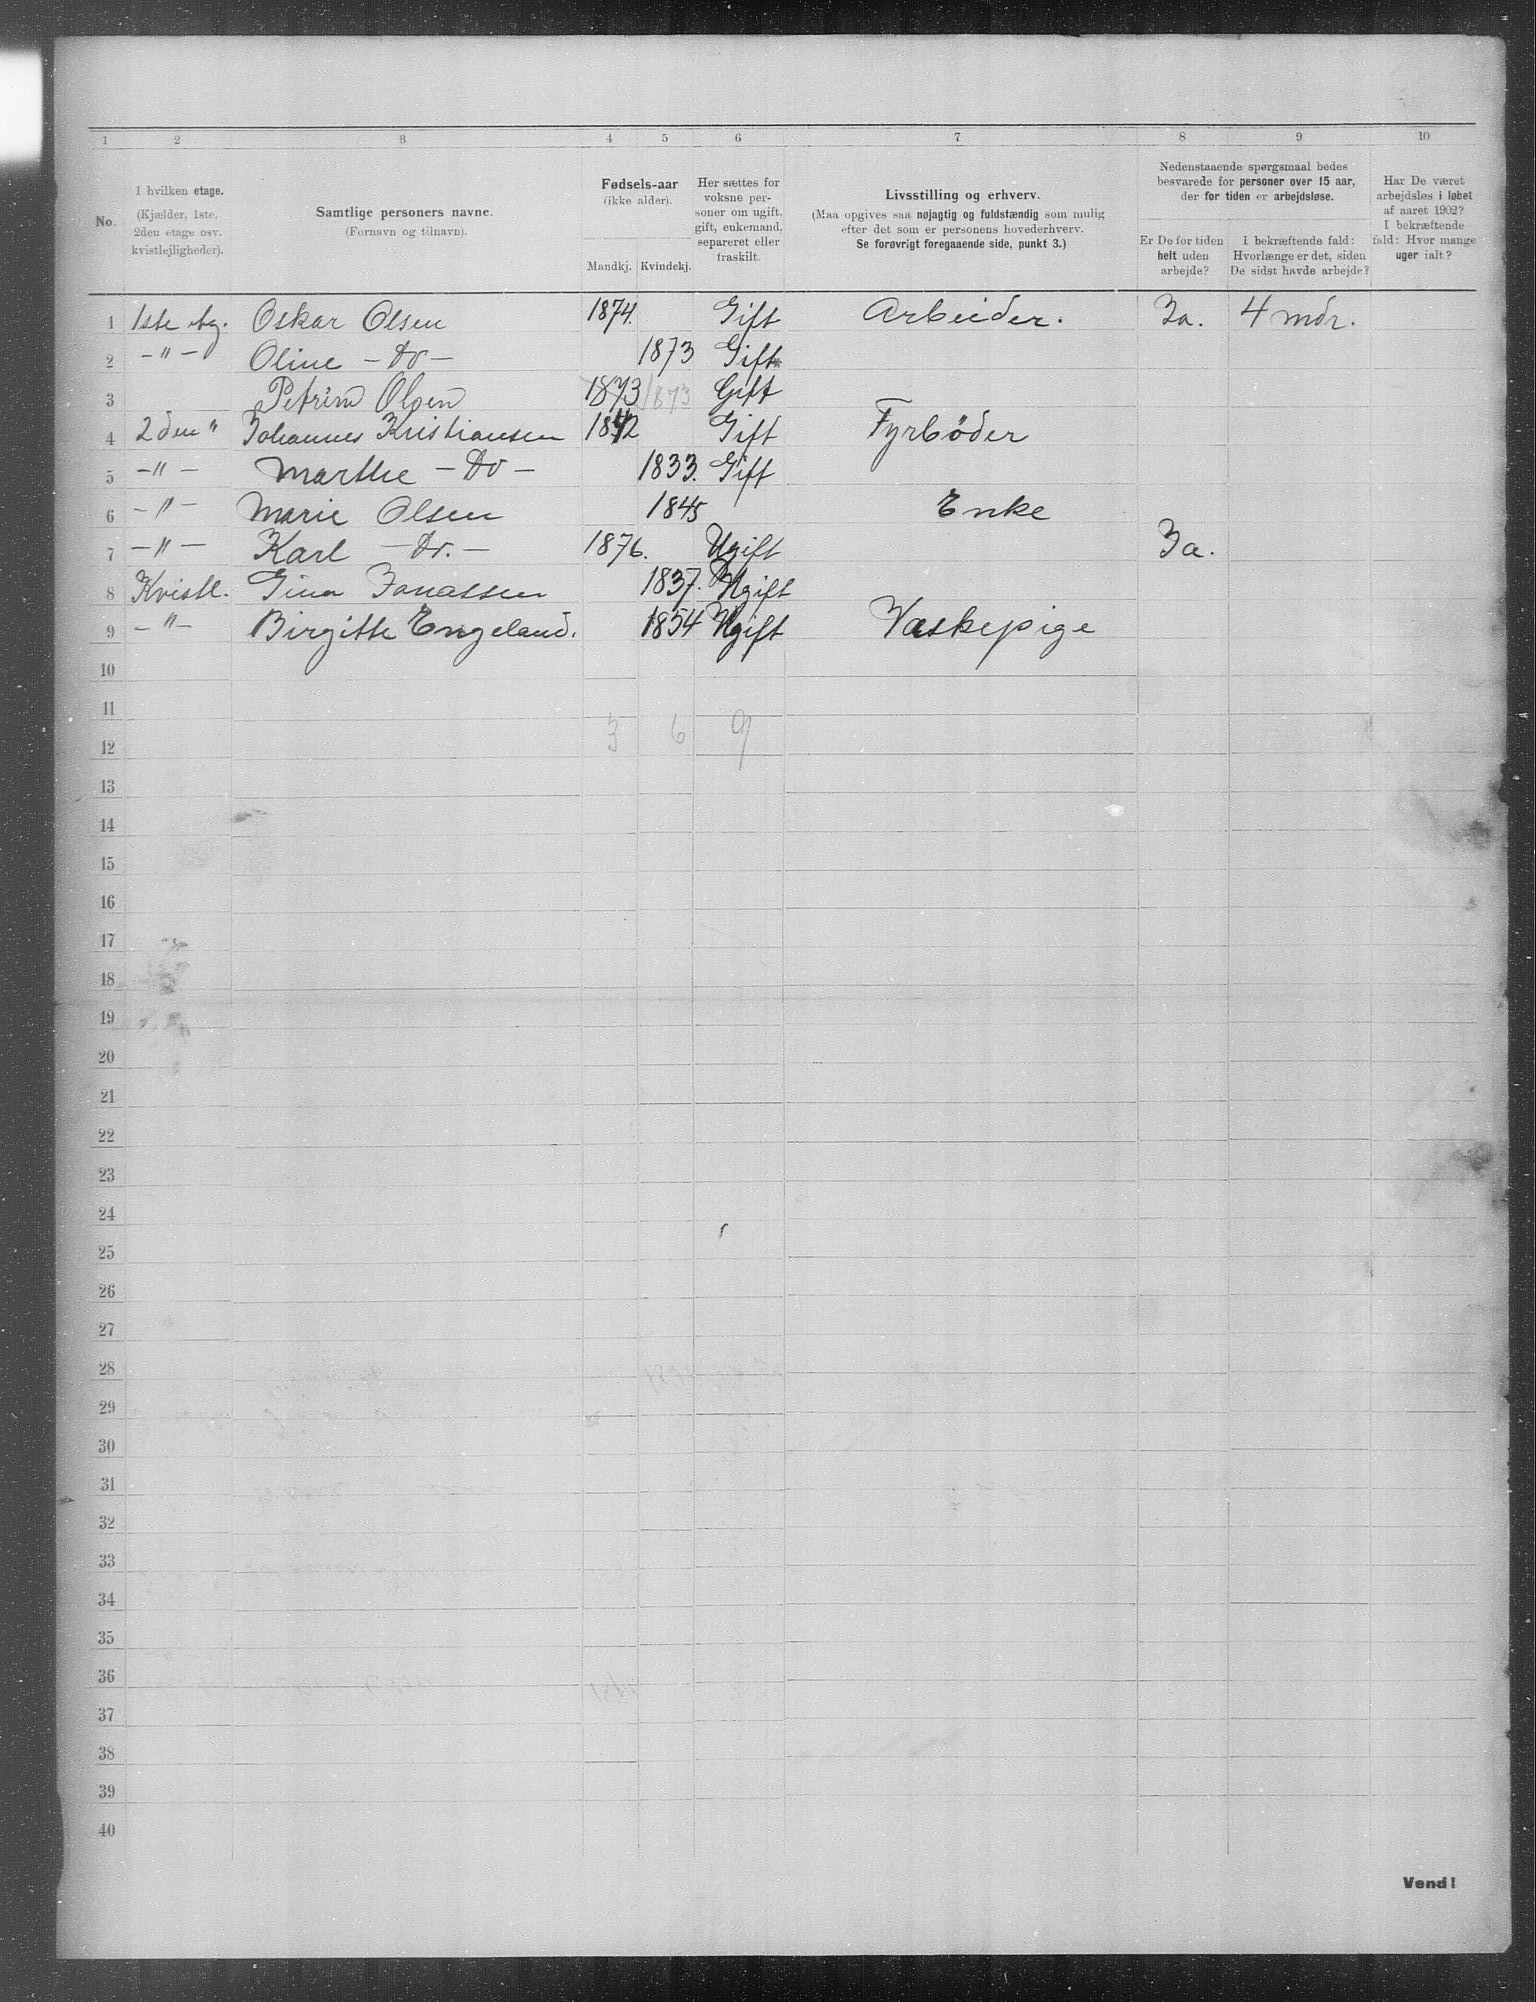 1 2 3 4 5 6 7 8 9 10
No.
I hvilken etage.
(Kjælder, 1ste,
2den etage osv.
kvistlejligheder).
Samtlige personers navne.
(Fornavn og tilnavn).
Fødsels-aar
(ikke alder).
Mandkj. Kvindekj.
Her sættes for
voksne per-
soner om ugift,
gift, enkemand,
separeret eller
fraskilt.
Livsstilling og erhverv.
(Maa opgives saa nøjagtig og fuldstændig som mulig
efter det som er personens hovederhverv.
Se forøvrigt foregaaende side, punkt 3.)
Nedenstaaende spørgsmaal bedes
besvarede for personer over 15 aar,
der for tiden er arbejdsløse.
Er De for tiden
helt uden
arbejde?
I bekræftende fald:
Hvorlænge er det, siden
De sidst havde arbejde?
Har De været
arbejdsløs i løbet
af aaret 1902?
I bekræftende
fald: Hvor mange
uger ialt?
1 1ste etg. Oskar Olsen 1874. Gift Arbeider. Ja. 4 mdr.
2 -"- Oline - Do - 1873 Gift
3 Petrine Olsen 1873 1873 Gift
4 2den " Johannes Kristiansen 1842 Gift Fyrbøder
5 -"- Marthe - Do - 1833. Gift
6 -"- Marie Olsen 1845 Enke
7 -"- Karl - Do. - 1876. Ugift Ja.
8 Kvistl. Gina Jonassen 1837. Ugift
9 -"- Birgitte Engeland. 1854 Ugift Vaskepige
10
11
3 6 9
12
13
14
15
16
17
18
19
20
21
22
23
24
25
26
27
28
29
30
31
32
33
34
35
36
37
38
39
40
Vend!